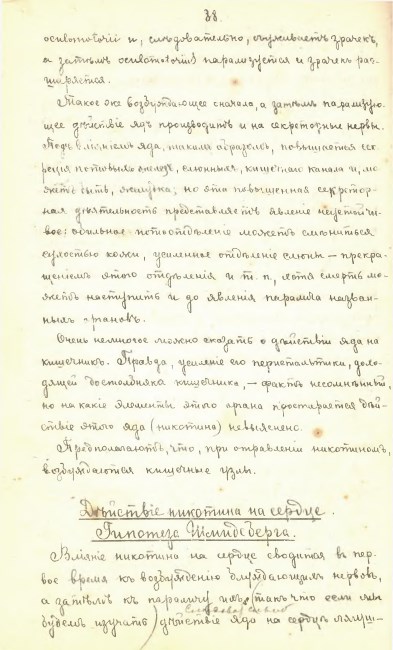 38.
oculomotorii и, слѣдовательно, съуживаетъ зрачекъ,
а затѣмъ oculomotorius парализуется и зрачекъ рас-
ширяется.
Такое же возбуждающее сначала, а затѣмъ парализую-
щее дѣйствіе ядъ производитъ и на секреторные нервы.
Подъ вліяніемъ яда, такимъ образомъ, повышается сек-
реція потовыхъ железъ, слюнныхъ, кишечнаго канала и, мо-
жетъ быть, желудка; но эта повышенная секретор-
ная дѣятельность представляетъ явленіе неустойчи-
вое: обильное потоотдѣленіе можетъ смѣниться
сухостью кожи, усиленное отдѣленіе слюны – прекра-
щеніемъ этого отдѣленія и т. п., хотя смерть мо-
жетъ наступить и до явленія паралича назван-
ныхъ органовъ.
Очень немногое можно сказать о дѣйствіи яда на
кишечникъ. Правда, усиленіе его перистальтики, дохо-
дящей до столбняка кишечника, – фактъ несомнѣнный,
но на какіе элементы этого органа простирается дѣй-
ствіе этого яда (никотина) невыяснено.
Предполагаютъ, что, при отравленіи никотиномъ,
возбуждаются кишечные узлы.
Дѣйствіе никотина на сердце.
Гипотеза Шмидеберга.
Вліяніе никотина на сердце сводится въ пер-
вое время къ возбужденію блуждающихъ нервовъ,
а затѣмъ къ параличу ихъ, такъ что если мы
будемъ изучать дѣйствіе яда на сердцѣ лягуш-